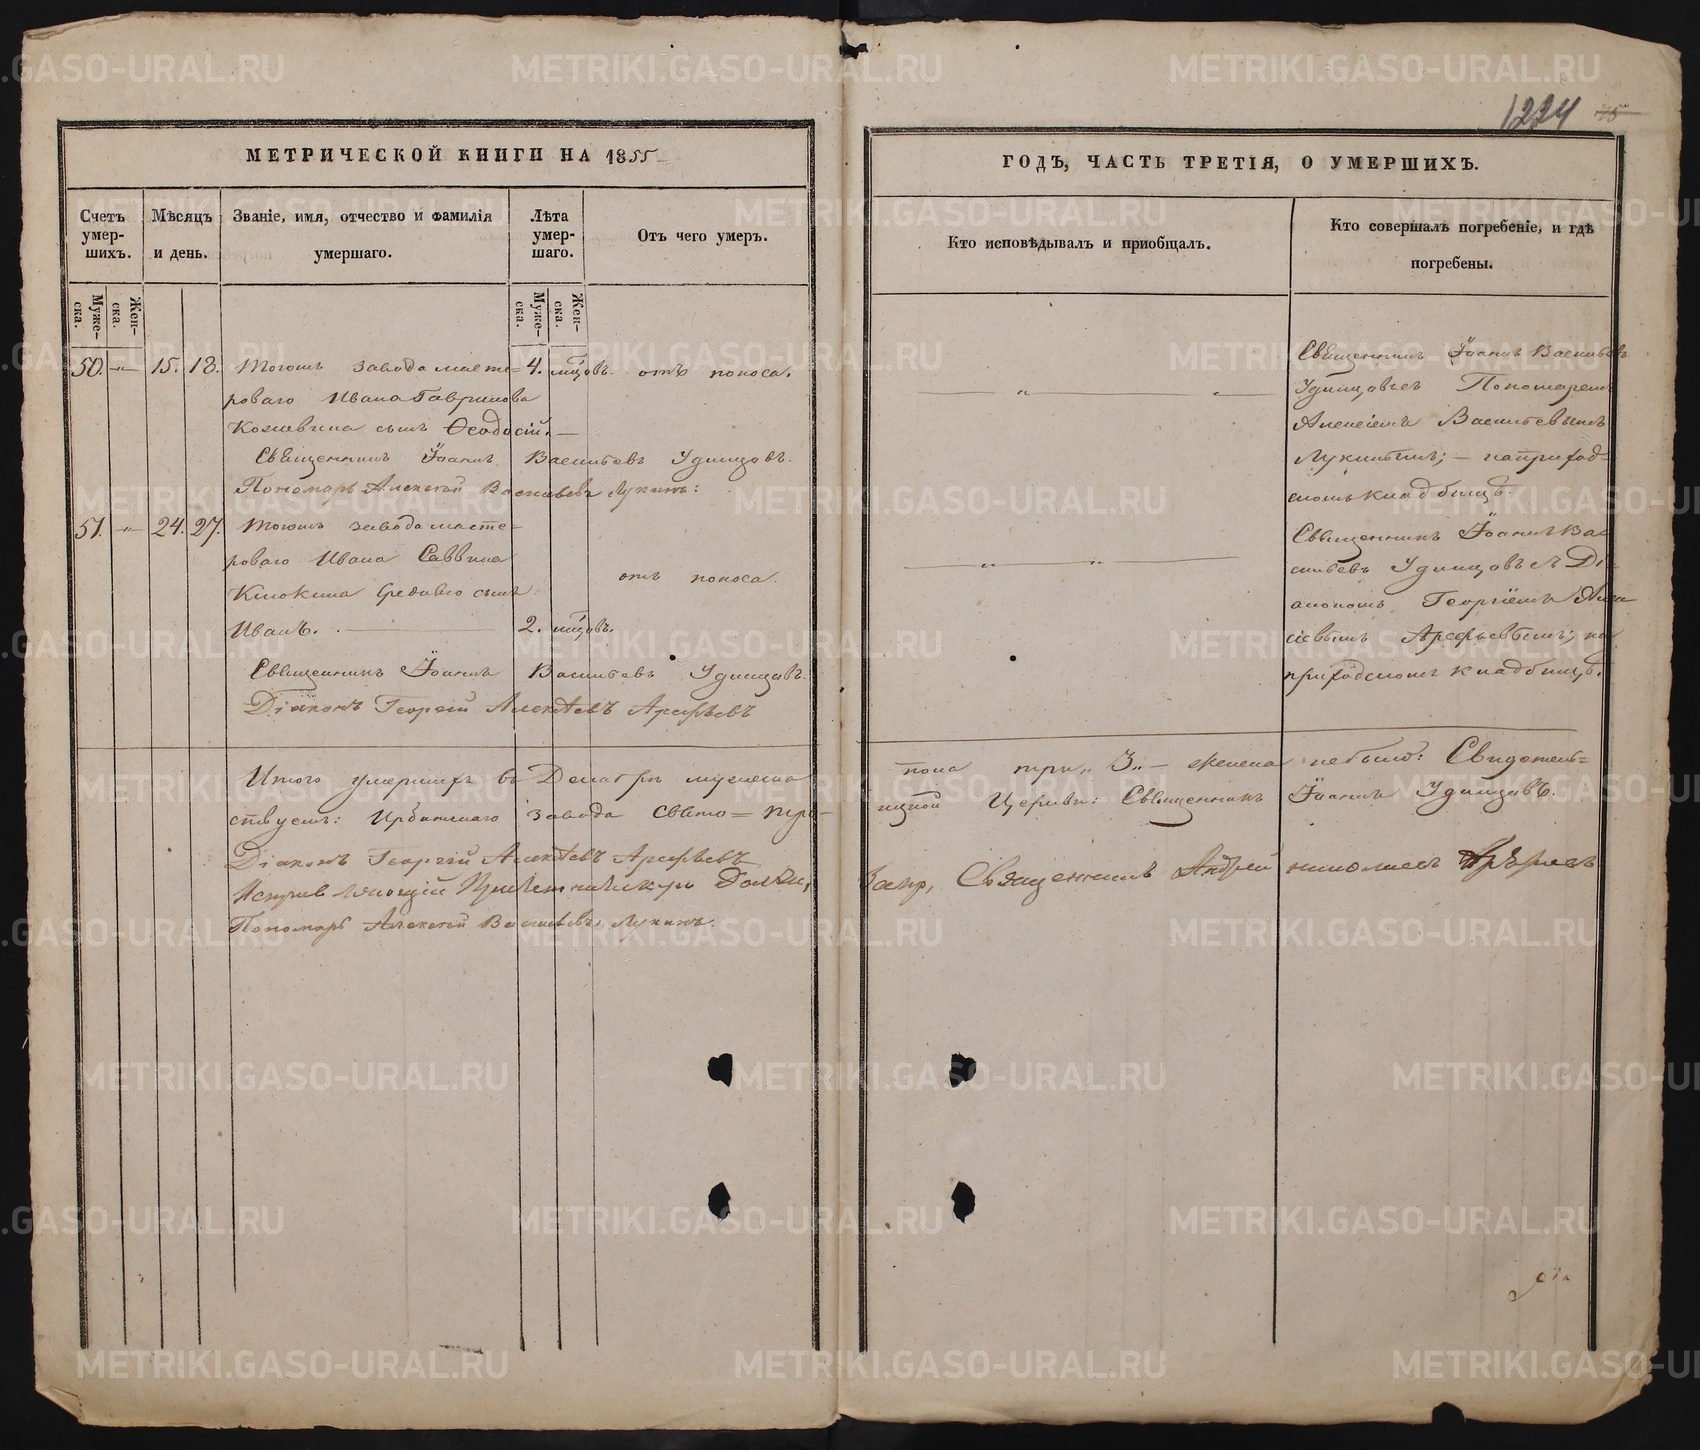 1224 45
МЕТРИЧЕСКОЙ КНИГИ НА 1855
ГОДЪ, ЧАСТЬ ТРЕТІЯ, О УМЕРШИХЪ.
Счетъ умер-шихъ.
Мѣсяцъ и день.
Званіе, имя, отчество и фамилія умершаго.
Лѣта умер-шаго.
Отъ чего умеръ.
Кто исповѣдывалъ и пріобщалъ.
Кто совершалъ погребеніе, и гдѣ погребены.
Муже-ска.
Жен-ска.
Муже-ска.
Жен-ска.
50. „ 15. 18. Тогожъ завода масте= 4. мцовъ. отъ поноса.
роваго Ивана Гаврилова
Кожевина сынъ Ѳеодосій. —
Священникъ Іоаннъ Васильевъ Удинцовъ.
Пономарь Алексѣй Васильевъ Лукинъ:
Священникъ Іоаннъ Васильевъ
Удинцовъ съ Пономаремъ
Алексіемъ Васильевымъ
Лукинымъ; — на приход-
скомъ кладбищѣ.
51. „ 24. 27. Тогожъ завода масте=
роваго Ивана Саввина
Клюкина сынъ
Иванъ. 2. мцовъ.
отъ поноса.
Священникъ Іоаннъ Васильевъ Удинцовъ.
Діаконъ Георгій Алексѣевъ Арефьевъ
Священникъ Іоаннъ Ва-
сильевъ Удинцовъ съ Ді-
акономъ Георгіемъ Алек
сіевымъ Арефьевымъ; на
приходскомъ кладбищѣ.
Итого умершихъ въ Декабрѣ мужеска пола три „3„ — женска небыло: Свидѣтель=
ствуемъ: Ирбитскаго завода Свято=Тро-ицкой Церкви: Священникъ Іоаннъ Удинцовъ.
Діаконъ Георгій Алексѣевъ Арефьевъ
Исправляющій Причетническую Должн,
Пономарь Алексѣй Васильевъ Лукинъ.
Священникъ Андрей
METRIKI.GASO-URAL.RU